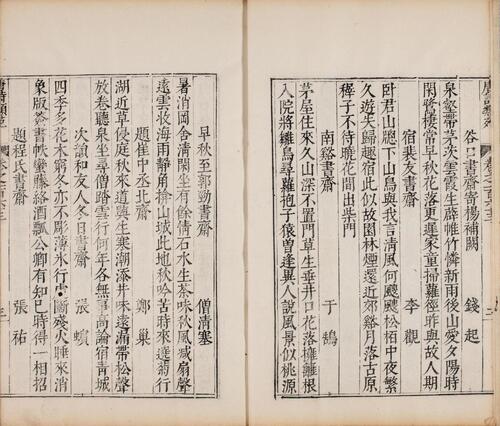 谷口書齋寄楊補闕　錢起
泉壑帶茅茨雲霞生薜帷竹憐新雨後山愛夕陽時
閑鷺棲常早秋花落更遲家童掃蘿徑昨與故人期
宿裴友書齋　李觀
卧君山牕下山鳥與我言清風何颼颼松栢中夜繁
久遊失歸趣宿此似故園林煙還近郊谿月落古原
稺子不待曉花間出柴門
南谿書齋　于鵠
茅屋住來久山深不置門草生垂井口花落擁籬根
入院將雛鳥尋蘿抱子猿曽逢異人說風景似桃源
早秋至郭劭書齋　僧清塞
暑消岡舍清閑坐有餘情石水生茶味秋風減扇聲
遠雲收海雨靜角揜山城此地秋吟苦時來遶菊行
題崔中丞北齋　鄭巢
湖近草侵庭秋來道興生寒潮添井味遠漏帶松聲
放卷聽泉坐尋僧踏雲行何年各無事高論宿青城
次韻和友人冬日書齋　張蠙
四季多花木窮冬亦不彫薄氷行處斷殘火睡來消
象版簽書帙蠻藤絡酒瓢公卿有知己時得一相招
題程氏書齋　張祜